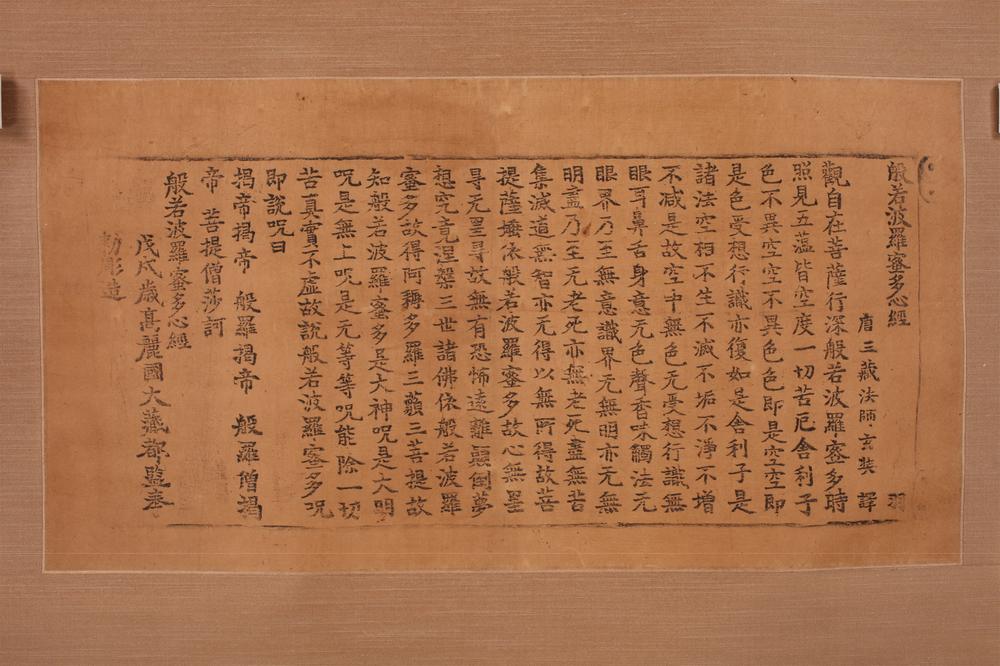 般若波羅蜜多心經　羽
唐三藏法師玄奘　譯
觀自在菩薩行深般若波羅蜜多時
照見五蕰皆空度一切苦厄舍利子
色不異空空不異色色即是空空即
是色受想行識亦復如是舍利子是
諸法空相不生不滅不垢不淨不增
不减是故空中無色无受想行識無
眼耳鼻舌身意无色聲香味觸法无
眼界乃至無意識界无無明亦无無
明盡乃至无老死亦無老死盡無苦
集滅道無智亦无得以無所得故菩
提薩埵依般若波羅蜜多故心無罣
㝵无罣㝵故無有恐怖遠離顚倒夢
想究竟涅槃三世諸佛依般若波羅
蜜多故得阿耨多羅三藐三菩提故
知般若波羅蜜多是大神呪是大明
呪是無上呪是无等等呪能除一切
苦真實不虛故說般若波羅蜜多呪
即說呪曰
揭帝揭帝　般羅揭帝　般羅僧揭
帝　菩提僧莎訶
般若波羅蜜多心經
戊戌歲高麗國大藏都監奉
勑彫造